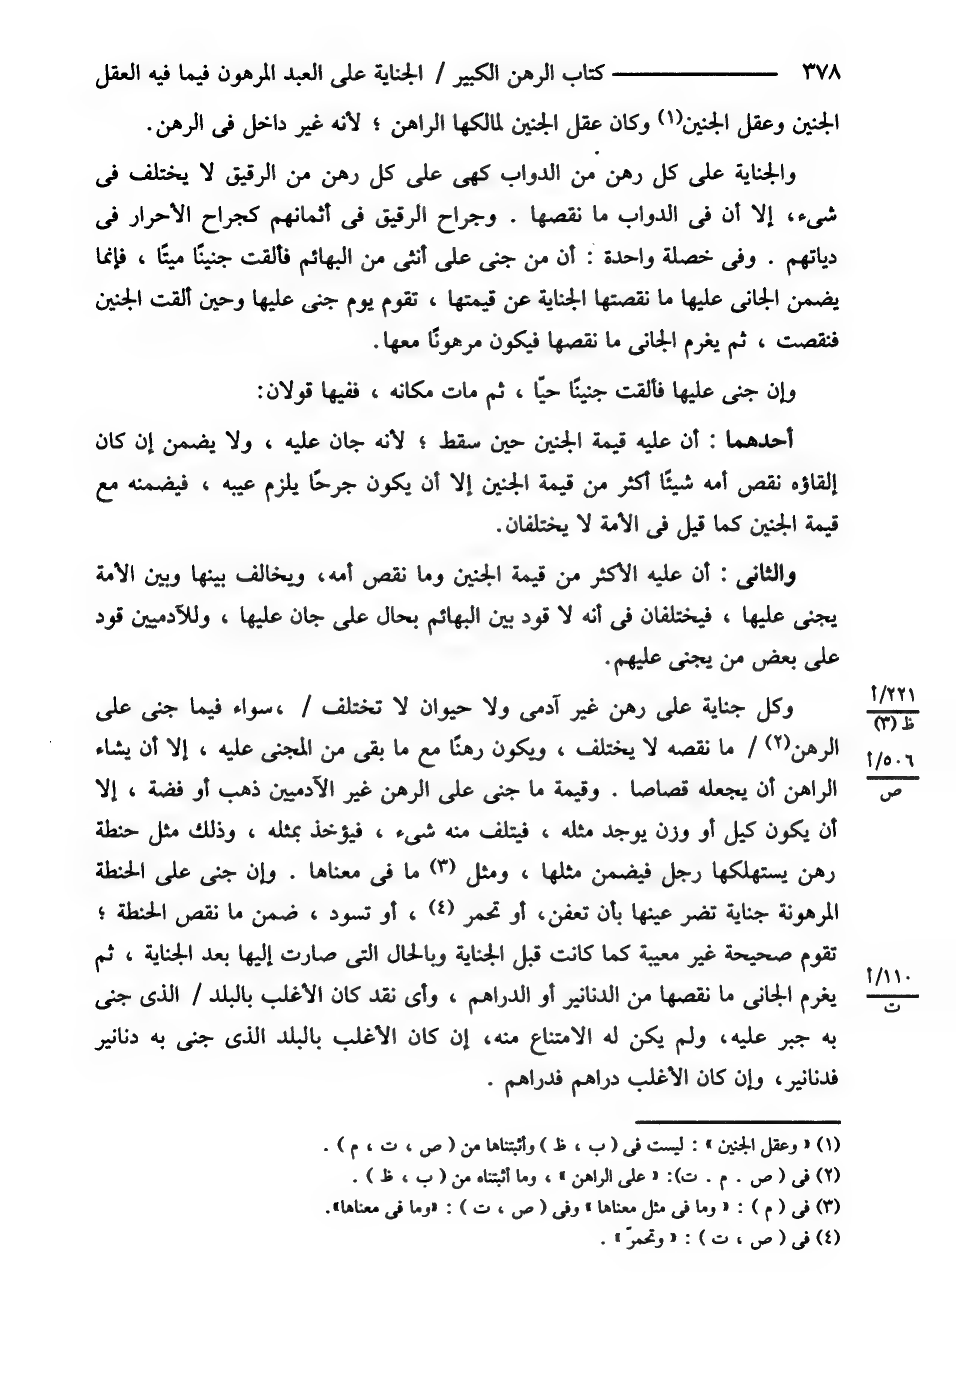 ٣٧٨ ـــــــــ كتاب الرهن الكبير / الجناية على العبد المرهون فيما فيه العقل
الجنين وعقل الجنين(١) وكان عقل الجنين لمالكها الراهن ؛ لأنه غير داخل فى الرهن.
والجناية على كل رهن من الدواب كهى على كل رهن من الرقيق لا يختلف فى
شىء، إلا أن فى الدواب ما نقصها . وجراح الرقيق فى أثمانهم كجراح الأحرار فى
دياتهم . وفى خصلة واحدة : أن من جنى على أنثى من البهائم فألقت جنينًا ميتًا ، فإنما
يضمن الجانى عليها ما نقصتها الجناية عن قيمتها ، تقوم يوم جنى عليها وحين ألقت الجنين
فنقصت ، ثم يغرم الجانى ما نقصها فيكون مرهونًا معها.
وإن جنى عليها فألقت جنينًا حيّا ، ثم مات مكانه ، ففيها قولان:
أحدهما : أن عليه قيمة الجنين حين سقط ؛ لأنه جان عليه ، ولا يضمن إن كان
إلقاؤه نقص أمه شيئًا أكثر من قيمة الجنين إلا أن يكون جرحًا يلزم عيبه ، فيضمنه مع
قيمة الجنين كما قيل فى الأمة لا يختلفان.
والثانى : أن عليه الأكثر من قيمة الجنين وما نقص أمه، ويخالف بينها وبين الأمة
يجنى عليها ، فيختلفان فى أنه لا قود بين البهائم بحال على جان عليها ، وللآدميين قود
على بعض من يجنى عليهم.
وكل جناية على رهن غير آدمى ولا حيوان لا تختلف / ،سواء فيما جنى على
٢٢١/أ
ظ (٣)
الرهن(٢) / ما نقصه لا يختلف ، ويكون رهنًا مع ما بقى من المجنى عليه ، إلا أن يشاء
٥٠٦/أ
ص
الراهن أن يجعله قصاصا . وقيمة ما جنى على الرهن غير الآدميين ذهب أو فضة ، إلا
أن يكون كيل أو وزن يوجد مثله ، فيتلف منه شىء ، فيؤخذ بمثله ، وذلك مثل حنطة
رهن يستهلكها رجل فيضمن مثلها ، ومثل (٣) ما فى معناها . وإن جنى على الحنطة
المرهونة جناية تضر عينها بأن تعفن، أو تحمر (٤) ، أو تسود ، ضمن ما نقص الحنطة ؛
تقوم صحيحة غير معيبة كما كانت قبل الجناية وبالحال التى صارت إليها بعد الجناية ، ثم
يغرم الجانى ما نقصها من الدنانير أو الدراهم ، وأى نقد كان الأغلب بالبلد / الذى جنى
١١٠/أ
ت
به جبر عليه، ولم يكن له الامتناع منه، إن كان الأغلب بالبلد الذى جنى به دنانير
فدنانير، وإن كان الأغلب دراهم فدراهم .
(١) « وعقل الجنين » : ليست فى ( ب ، ظ ) وأثبتناها من ( ص ، ت ، م ) .
(٢) فى ( ص . م . ت): « على الراهن » ، وما أثبتناه من ( ب ، ظ ) .
(٣) فى ( م ) : « وما فى مثل معناها » وفى ( ص ، ت ) : «وما فى معناها».
(٤) فى ( ص ، ت ) : « وتحمرّ » .